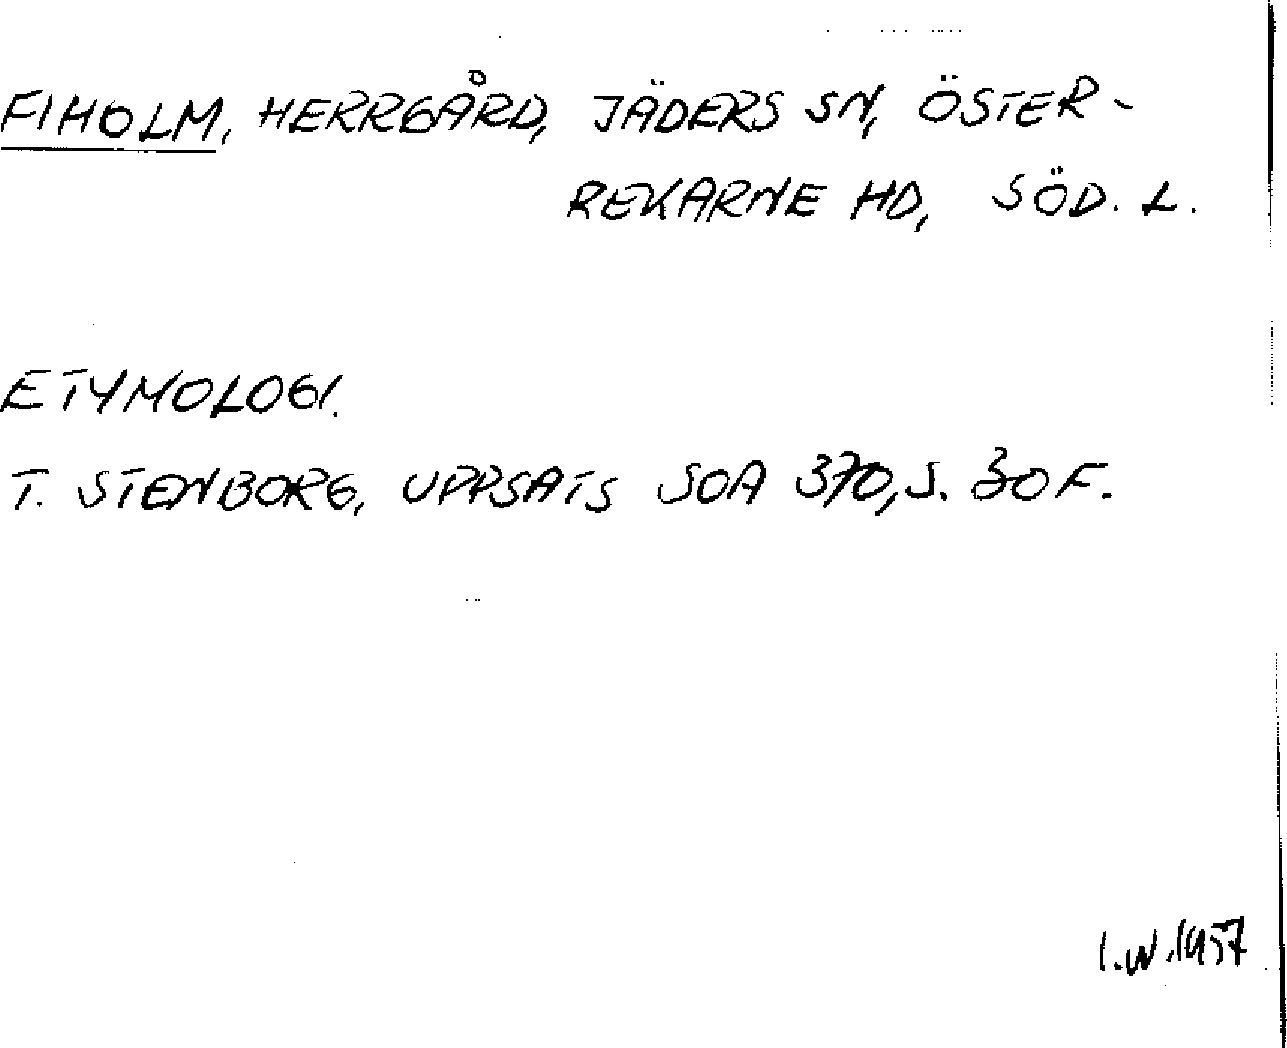 FIHOLM, HERRGÅRD, JÄDERS SN, ÖSTER-
REKARNE HD, SÖD. L.
ETYMOLOGI.
T. STENBORG, UPPSATS SOA 370, S. 30 F.
I.W. 1957